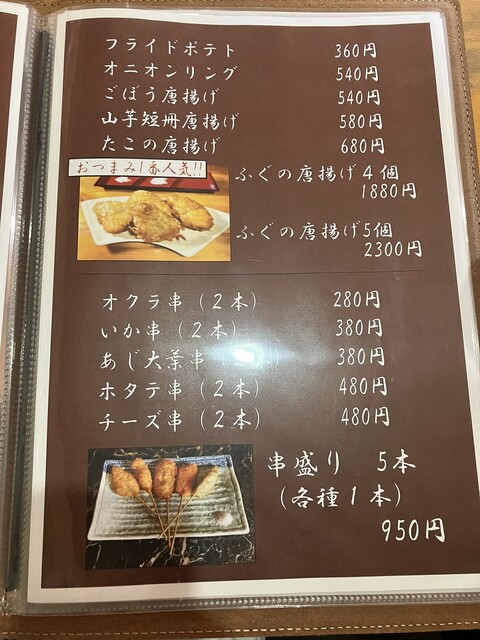 フライドポテト 360円
オニオンリング 540円
ごぼう唐揚げ 540円
山芋短冊唐揚げ 580円
たこの唐揚げ 680円
おつまみ1番人気!!
ふぐの唐揚げ4個
1880円
ふぐの唐揚げ5個
2300円
オクラ串(2本) 280円
いか串(2本) 380円
あじ大葉串 本) 380円
ホタテ串(2本) 480円
チーズ串(2本) 480円
串盛り 5本
(各種1本)
950円